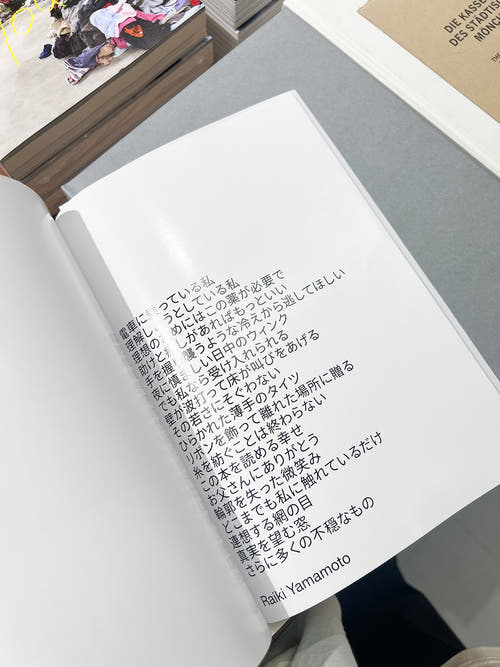 電車に乗っている私
理解しようとしている私
理想のためにはこの薬が必要で
助けと があればもっといい
手を握り 襲うような冷えから逃してほしい
夜に慎ましい日中のウインク
でも私なら受け入れられる
壁が波打って床が叫びをあげる
その若さにそぐわない
ひらかれた薄手のタイツ
リボンを飾って離れた場所に贈る
糸を紡ぐことは終わらない
この本を読める幸せ
お父さんにありがとう
輪郭を失った微笑み
どこまでも私に触れているだけ
連想する網の目
真実を望む窓
さらに多くの不穏なもの
Raiki Yamamoto
DIE KASSE
DES STÄDTIS
MÖNC